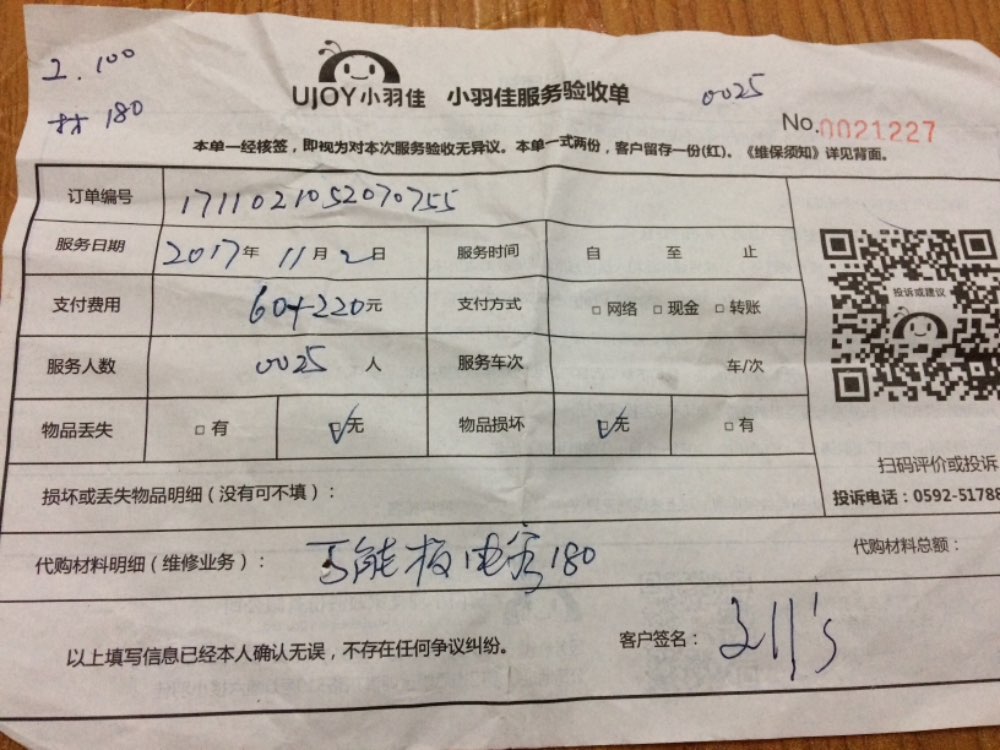 工 100
材 180
UJOY小羽佳 小羽佳服务验收单 0025
No.0021227
本单一经核签，即视为对本次服务验收无异议。本单一式两份，客户留存一份(红)。《维保须知》详见背面。
订单编号 1711021052070755
服务日期 2017年 11月 2日 服务时间 自 至 止
支付费用 60+220元 支付方式 □网络 □现金 □转账
投诉或建议
服务人数 0025 人 服务车次 车/次
物品丢失 □有 ☑无 物品损坏 ☑无 □有
扫码评价或投诉
损坏或丢失物品明细（没有可不填）：
投诉电话：0592-51788
代购材料明细（维修业务）： 万能板电容180 代购材料总额：
以上填写信息已经本人确认无误，不存在任何争议纠纷。 客户签名：